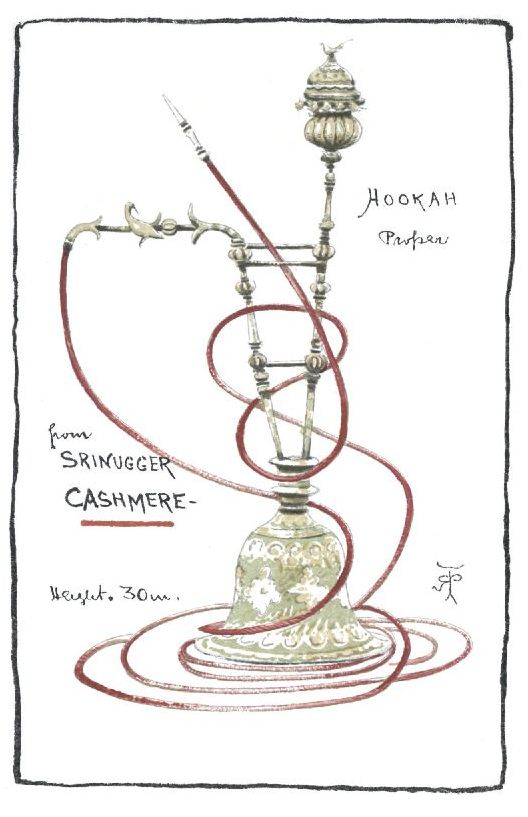 HOOKAH
Proper
from
SRINUGGER
CASHMERE-
Height. 30 in.